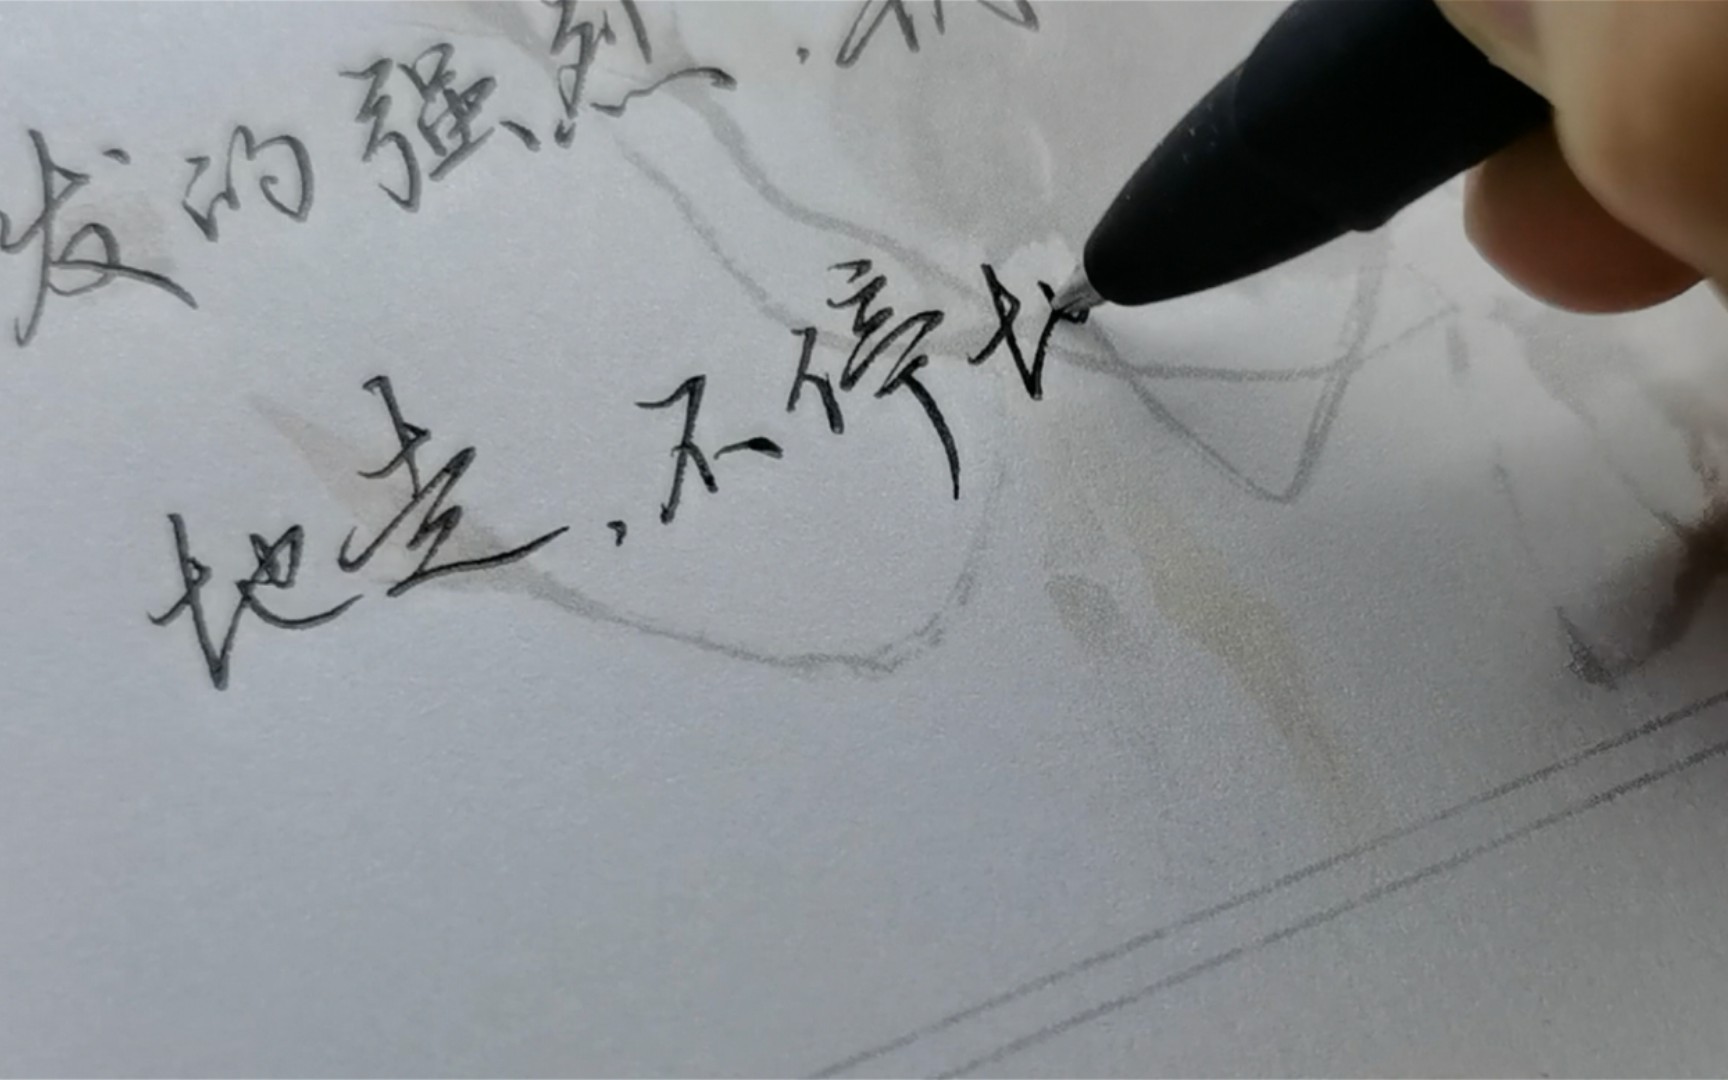 发的强烈，我
地走，不停地